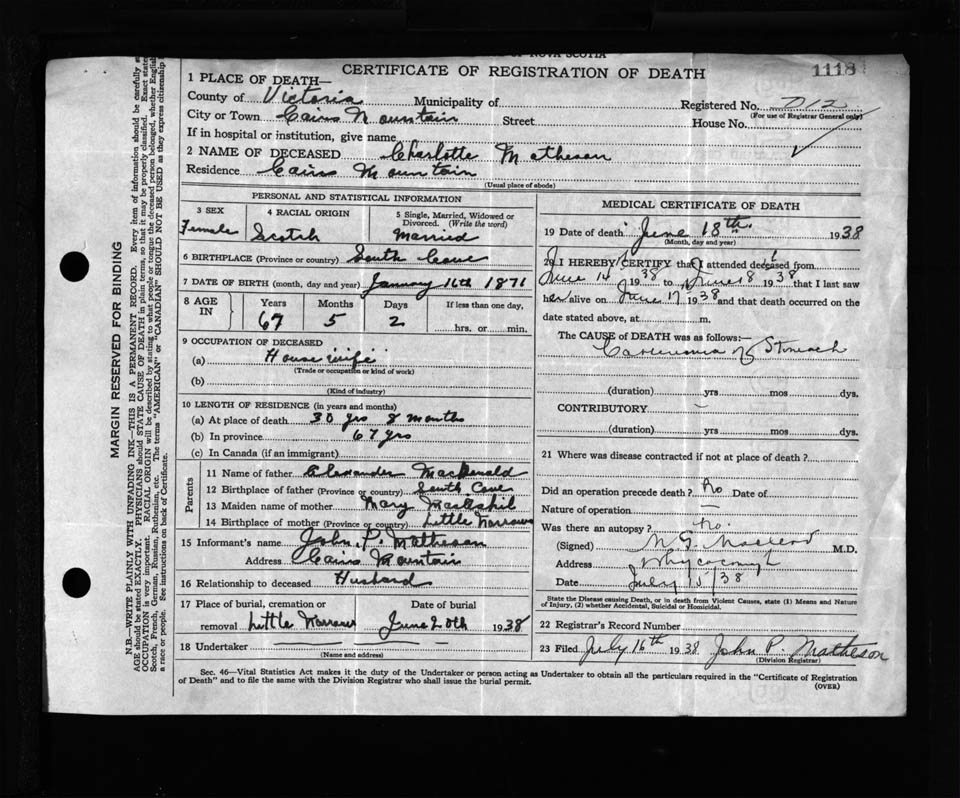 NOVA SCOTIA
CERTIFICATE OF REGISTRATION OF DEATH
1118
1 PLACE OF DEATH—
County of Victoria Municipality of Registered No. 712
(For use of Registrar General only)
City or Town Cains Mountain Street House No.
If in hospital or institution, give name
2 NAME OF DECEASED Charlotte Matheson
Residence Cains Mountain
(Usual place of abode)
PERSONAL AND STATISTICAL INFORMATION
3 SEX 4 RACIAL ORIGIN 5 Single, Married, Widowed or Divorced. (Write the word)
Female Scotch Married
6 BIRTHPLACE (Province or country) South Cove
7 DATE OF BIRTH (month, day and year) January 16th 1871
8 AGE IN Years Months Days If less than one day,
67 5 2 hrs. or min.
9 OCCUPATION OF DECEASED
(a) House wife
(Trade or occupation or kind of work)
(b)
(Kind of industry)
10 LENGTH OF RESIDENCE (in years and months)
(a) At place of death 30 yrs 8 months
(b) In province 67 yrs
(c) In Canada (if an immigrant)
Parents
11 Name of father Alexander MacDonald
12 Birthplace of father (Province or country) South Cove
13 Maiden name of mother Mary
14 Birthplace of mother (Province or country) Little Narrows
15 Informant's name John P. Matheson
Address Cains Mountain
16 Relationship to deceased Husband
17 Place of burial, cremation or Date of burial
removal Little Narrows June 20th 1938
18 Undertaker
(Name and address)
MEDICAL CERTIFICATE OF DEATH
19 Date of death June 18th. 1938
(Month, day and year)
20 I HEREBY CERTIFY that I attended deceased from
June 14 1938 to June 18 1938 that I last saw
her alive on June 17 1938 and that death occurred on the
date stated above, at m.
The CAUSE of DEATH was as follows:—
Carcinoma of Stomach
(duration) yrs mos dys.
CONTRIBUTORY
(duration) yrs mos dys.
21 Where was disease contracted if not at place of death?
Did an operation precede death? No Date of
Nature of operation —
Was there an autopsy? No.
(Signed) M.D.
Address Whycocomagh
Date July 15/38
State the Disease causing Death, or in death from Violent Causes, state (1) Means and Nature
of Injury, (2) whether Accidental, Suicidal or Homicidal.
22 Registrar's Record Number
23 Filed July 16th 1938 John P. Matheson
(Division Registrar)
Sec. 46—Vital Statistics Act makes it the duty of the Undertaker or person acting as Undertaker to obtain all the particulars required in the "Certificate of Registration
of Death" and to file the same with the Division Registrar who shall issue the burial permit.
(OVER)
MARGIN RESERVED FOR BINDING
N.B.—WRITE PLAINLY WITH UNFADING INK—THIS IS A PERMANENT RECORD. Every item of information should be carefully
AGE should be stated EXACTLY. PHYSICIANS should STATE CAUSE OF DEATH in plain terms, so that it may be properly classified. Exact state
OCCUPATION is very important. RACIAL ORIGIN will be described by stating to what people or tongue the deceased person belonged, whether English
Scotch, French, German, Russian, Ruthenian, etc. The terms "AMERICAN" or "CANADIAN" SHOULD NOT BE USED as they express citizenship
a race or people. See instructions on back of Certificate.